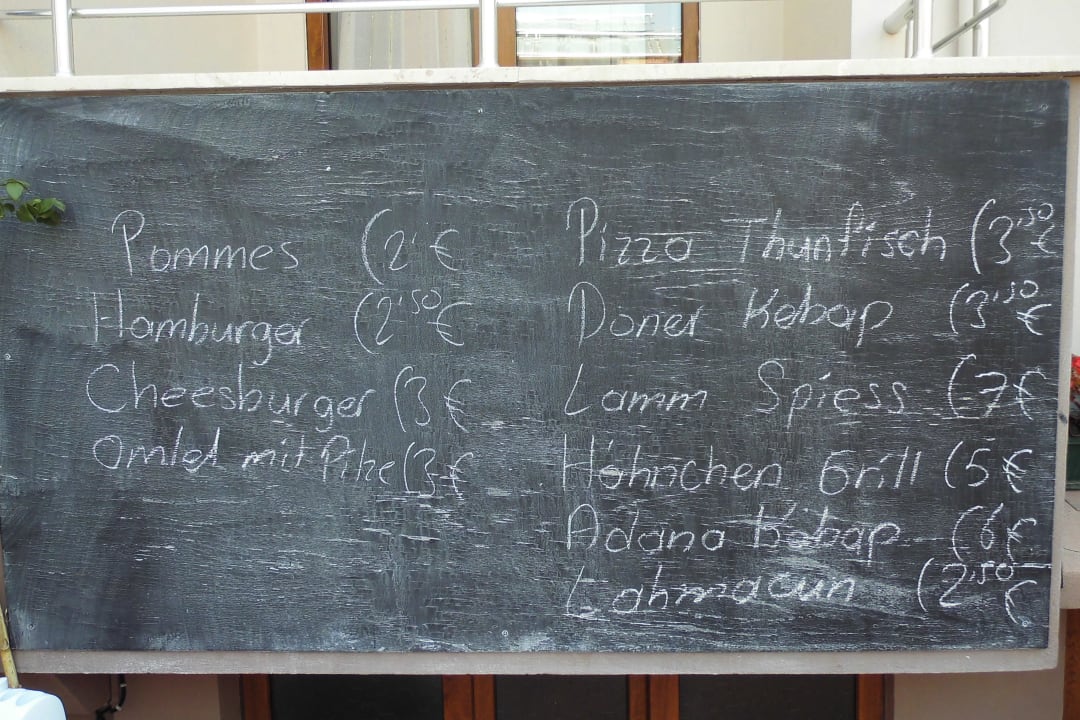 Pommes (2' €
Hamburger (2'50 €
Cheesburger (3 €
Omlet mit Pilze (3 €
Pizza Thunfisch (3'50 €
Döner Kebap (3'50 €
Lamm Spiess (7 €
Hähnchen Grill (5 €
Adana Kebap (6 €
Lahmacun (2'50 €